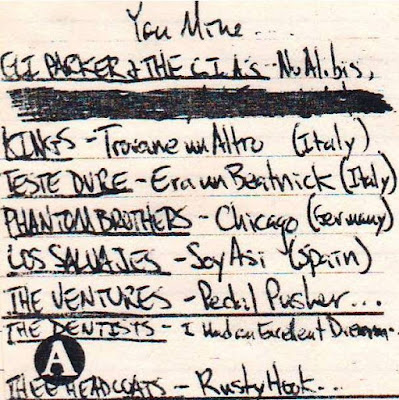 You Mine ...
ELI PARKER & THE C.I.A'S - No Alibis,
KINGS - Trovane un Altro (Italy)
TESTE DURE - Era un Beatnick (Italy)
PHANTOM BROTHERS - Chicago (Germany)
LOS SALVAJES - Soy Asi (Spain)
THE VENTURES - Pedal Pusher ...
THE DENTISTS - I Had an Excellent Dream...
A
THEE HEADCOATS - Rusty Hook ...